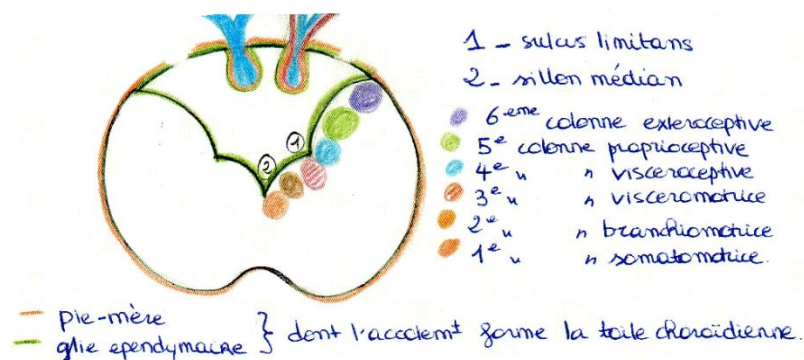 1 - sulcus limitans
2 - sillon médian
6eme colonne exteroceptive
5e colonne proprioceptive
4e " " visceroceptive
3e " " visceromotrice
2e " " branchiomotrice
1e " " somatomotrice.
1
2
pie-mère
glie ependymaire } dont l'accolemt forme la toile choroïdienne.